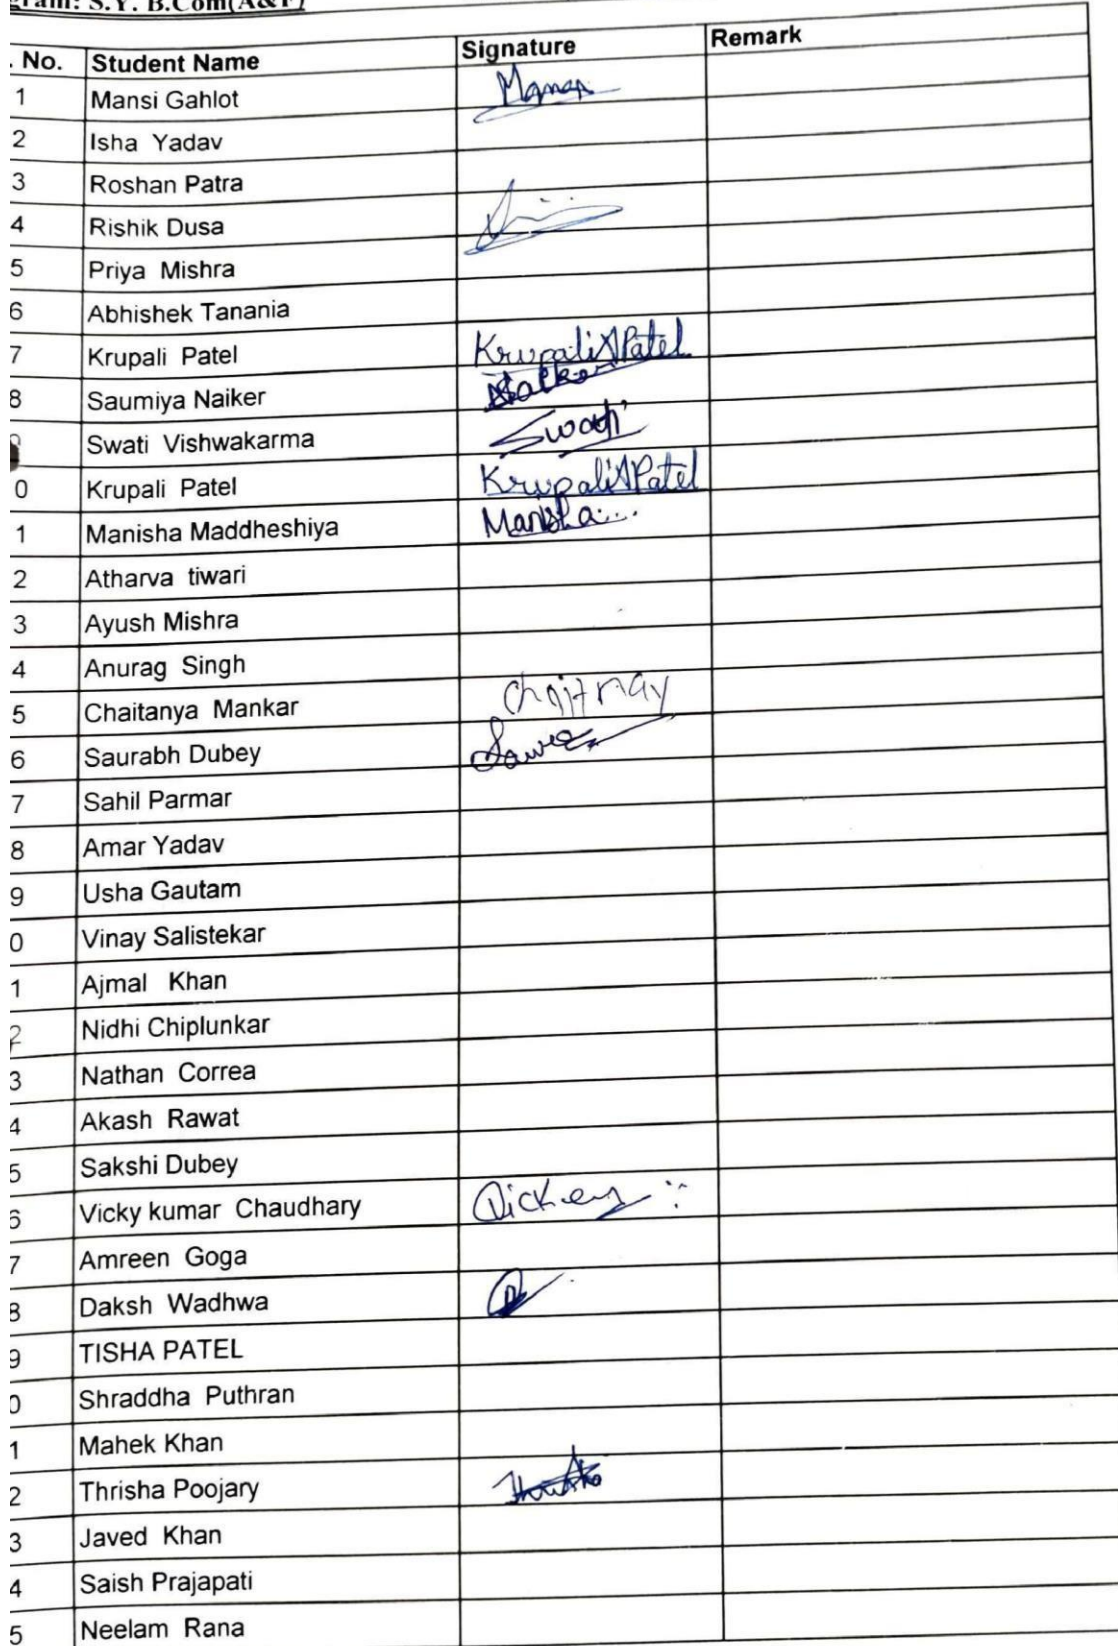 gram: S.Y. B.Com(A&F)
. No. Student Name Signature Remark
1 Mansi Gahlot
2 Isha Yadav
3 Roshan Patra
4 Rishik Dusa
5 Priya Mishra
6 Abhishek Tanania
7 Krupali Patel Krupali Patel
8 Saumiya Naiker
Swati Vishwakarma Swati
0 Krupali Patel Krupali Patel
1 Manisha Maddheshiya Manisha...
2 Atharva tiwari
3 Ayush Mishra
4 Anurag Singh
5 Chaitanya Mankar
6 Saurabh Dubey
7 Sahil Parmar
8 Amar Yadav
9 Usha Gautam
0 Vinay Salistekar
1 Ajmal Khan
2 Nidhi Chiplunkar
3 Nathan Correa
4 Akash Rawat
5 Sakshi Dubey
6 Vicky kumar Chaudhary
7 Amreen Goga
8 Daksh Wadhwa
9 TISHA PATEL
0 Shraddha Puthran
1 Mahek Khan
2 Thrisha Poojary
3 Javed Khan
4 Saish Prajapati
5 Neelam Rana